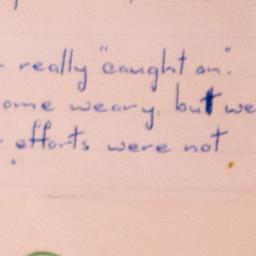 - really "caught on".
ome weary, but we
efforts were not